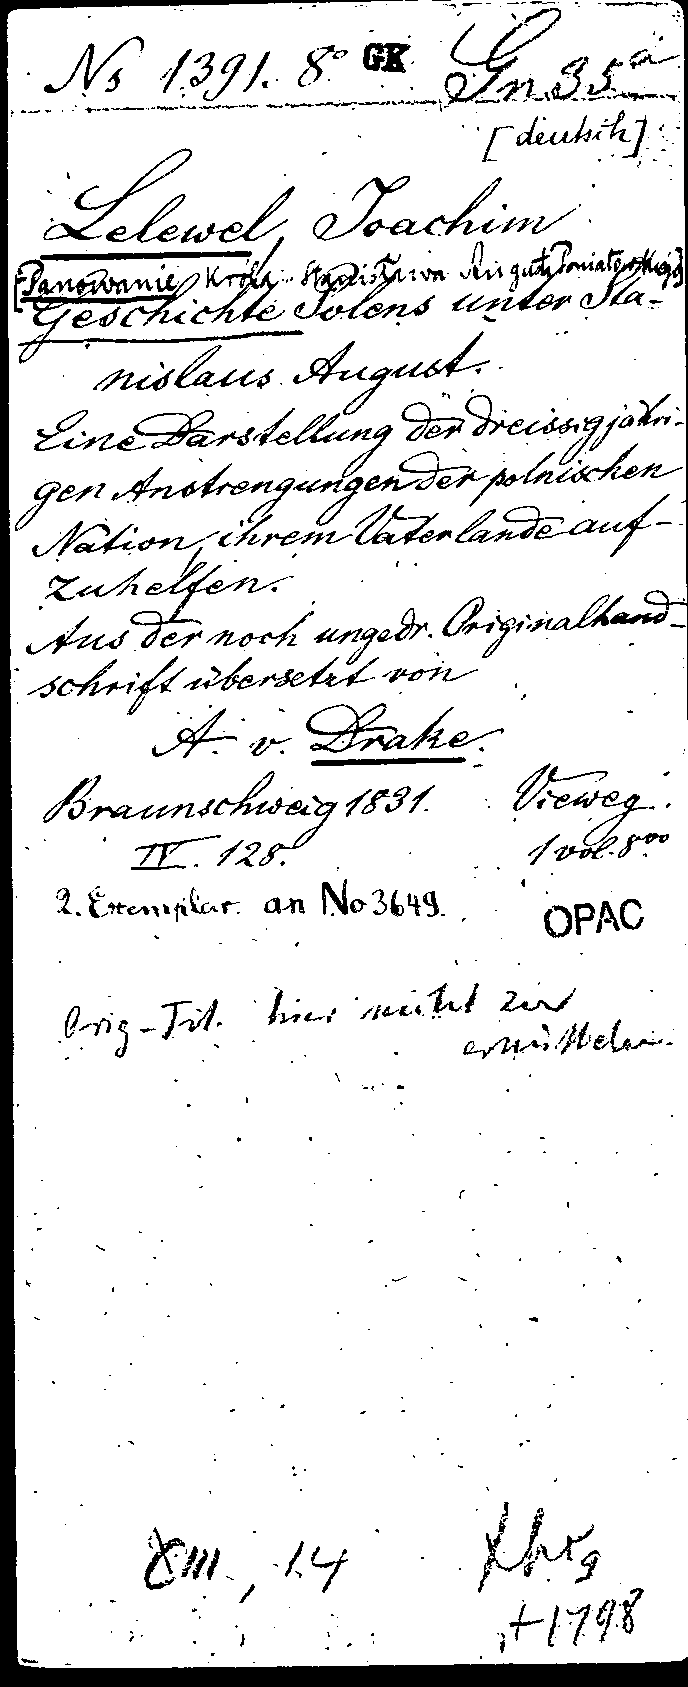 Ns 1391. 8° GK Gn 35a
[deutsch]
Lelewel, Joachim
[Panowanie Króla Stanisława Augusta Poniatowskiego]
Geschichte Polens unter Sta-
nislaus August.
Eine Darstellung der dreissigjähri-
gen Anstrengungen der polnischen
Nation, ihrem Vaterlande auf-
zuhelfen.
Aus der noch ungedr. Originalhand-
schrift übersetzt von
A. v. Drake.
Braunschweig 1831. Vieweg.
IV. 128. 1 vol. 8vo
2. Exemplar an No 3649.
OPAC
Orig-Tit. hier nicht zu
ermitteln.
XIII, 14
+1798